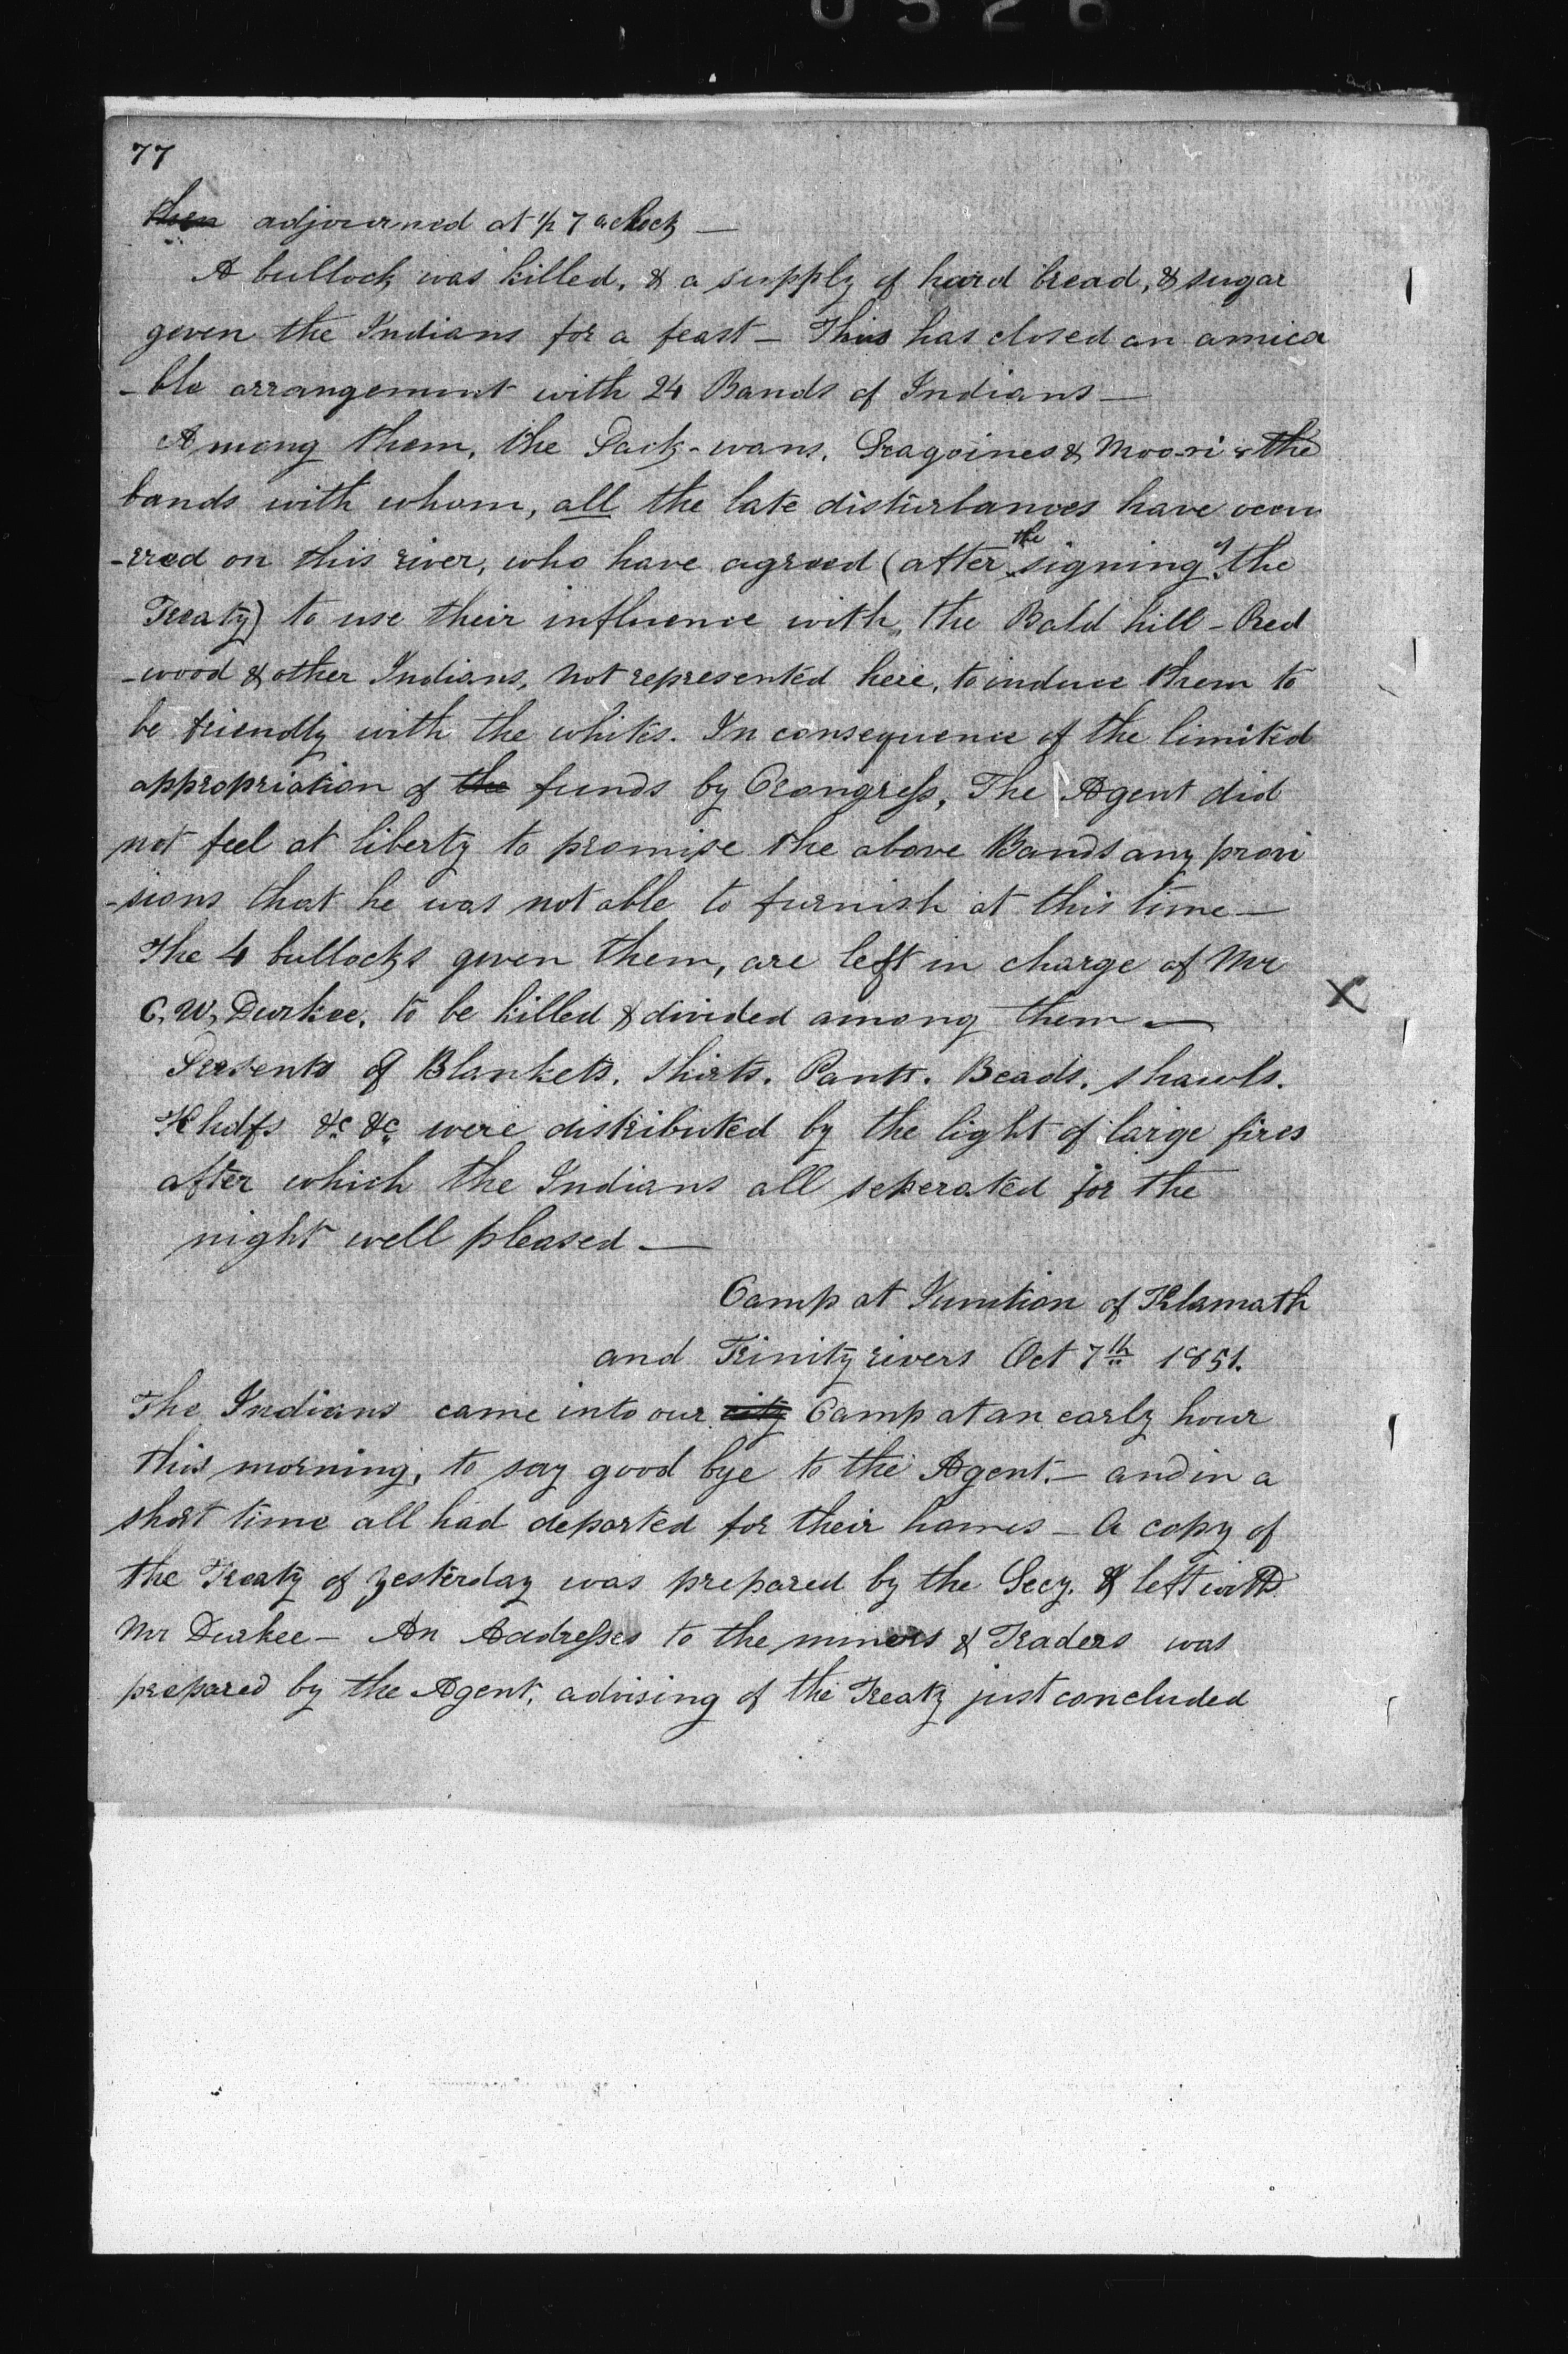 0526
77
then adjourned at 1/2 7 oclock —
A bullock was killed, & a supply of hard bread, & sugar
given the Indians for a feast — Thus has closed an amica
-ble arrangement with 24 Bands of Indians —
Among them, the Pack-wans, Seragoines & Moo-ri & the
bands with whom, all the late disturbances have occu
-rred on this river, who have agreed (after the signing of the
Treaty) to use their influence with, the Bald hill - Red
-wood & other Indians, not represented here, to induce them to
be friendly with the whites. In consequence of the limited
appropriation of the funds by Congress, The Agent did
not feel at liberty to promise the above Bands any provi
-sions that he was not able to furnish at this time —
The 4 bullocks given them, are left in charge of Mr
C. W. Durkee, to be killed & divided among them —
Persents of Blankets. Shirts. Pants. Beads. shawls.
Khdfs &c &c were distributed by the light of large fires
after which the Indians all seperated for the
night well pleased —
Camp at Junction of Klamath
and Trinity rivers Oct 7th 1851.
The Indians came into our city Camp at an early hour
this morning, to say good bye to the Agent. — and in a
short time all had departed for their homes — A copy of
the Treaty of yesterday was prepared by the Secy. & left with
Mr Durkee — An Addresses to the miners & Traders was
prepared by the Agent, advising of the Treaty just concluded